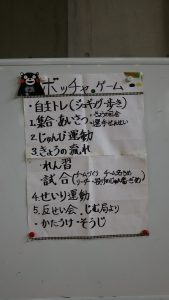 ボッチャ。ゲーム
・自主トレ(ジョギング・歩き)
1.集合・あいさつ
・きょうの
・選手せんせい
2.じゅんび運動
3.きょうの流れ
れん習
試合(チームづくり チーム名きめ
リーダー
4.せいり運動
5.反せい会、じむ局より
・かたづけ・そうじ